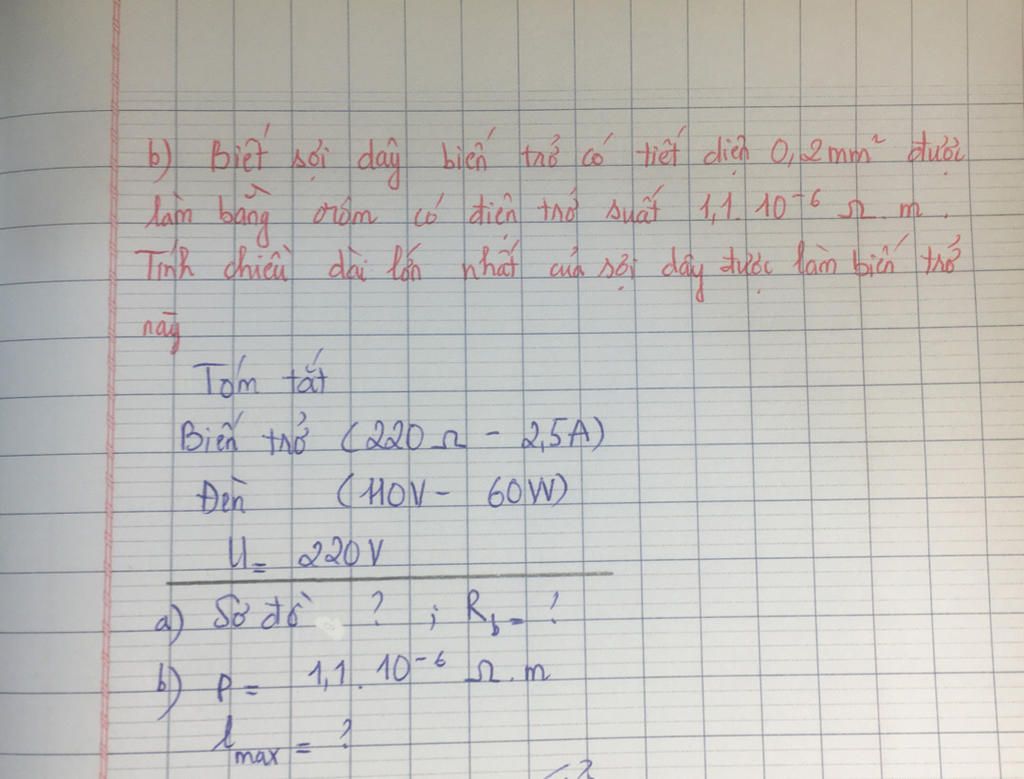 b) Biết sợi dây biến trở có tiết diện 0,2mm² được
làm bằng crôm có điện trở suất 1,1.10⁻⁶ Ω.m.
Tính chiều dài lớn nhất của sợi dây được làm biến trở
này
Tóm tắt
Biến trở (220Ω - 2,5A)
Đèn (110V - 60W)
U = 220V
a) Sơ đồ ? ; R_b = ?
b) ρ = 1,1.10⁻⁶ Ω.m
l_max = ?